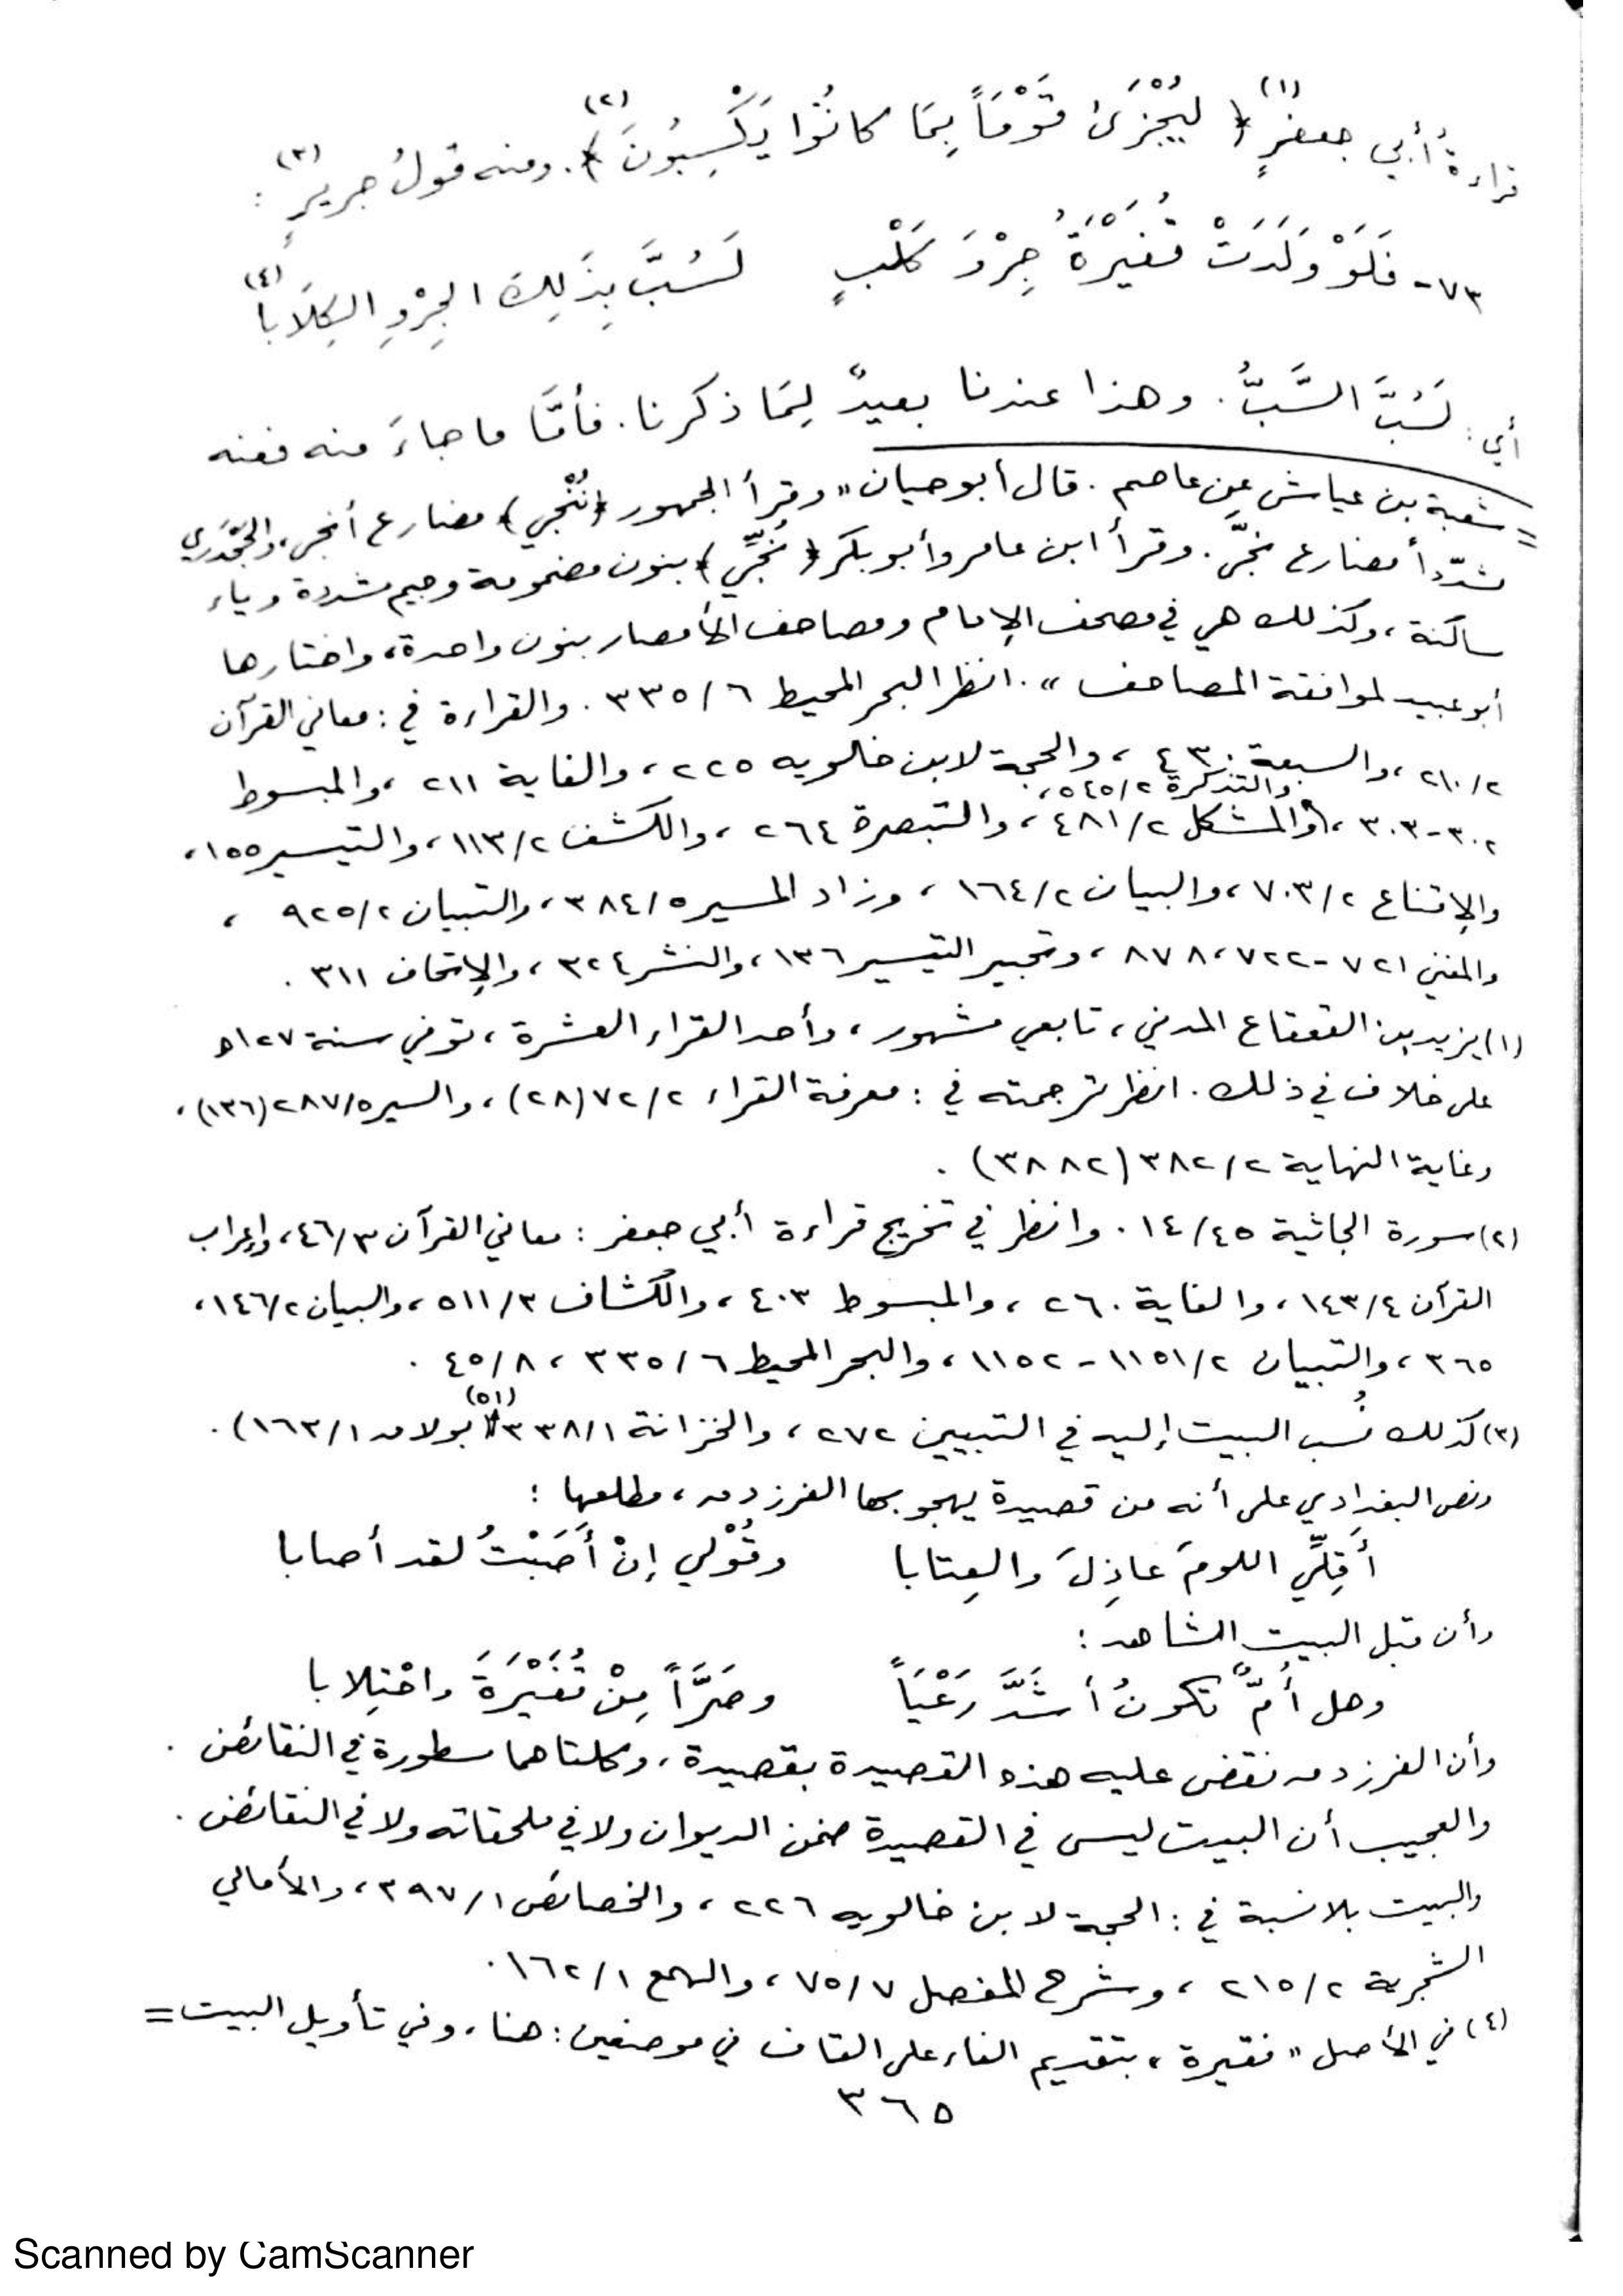 قراءةُ أبي جعفرٍ(١) ﴿ لِيُجْزَىٰ قَوْمَاً بِمَا كانُوا يَكْسِبُونَ ﴾(٢). ومنه قولُ جريرٍ(٣) :
٧٣- فَلَوْ وَلَدَتْ قُفَيْرَةُ جِرْوَ كَلْبٍ لَسُبَّ بِذَلِكَ الجِرْوِ الكِلَابا(٤)
أي : لَسُبَّ السَّبُّ . وهذا عندنا بعيدٌ لِمَا ذكرنا . فأمَّا ما جاءَ منه فمنه
= شعبة بن عياش عن عاصم . قال أبو حيان « وقرأ الجمهور ﴿نُنْجي﴾ مضارع أنجى ، والجَحْدَري
مشدّداً مضارع نجَّى . وقرأ ابن عامر وأبو بكر ﴿ نُجِّي ﴾ بنون مضمومة وجيم مشددة وياء
ساكنة ، وكذلك هي في مصحف الإمام ومصاحف الأمصار بنون واحدة ، واختارها
أبو عبيد لموافقة المصاحف » . انظر البحر المحيط ٦/ ٣٣٥ . والقراءة في : معاني القرآن
٢/ ٢١٠ ، والسبعة ٤٣٠ ، والحجة لابن خالويه ٢٢٥ ، والغاية ٢١١ ، والمبسوط
والتذكرة ٢/ ٥٤٥ ،
٣٠٢-٣٠٣ ، والمشكل ٢/ ٤٨١ ، والتبصرة ٢٦٤ ، والكشف ٢/ ١١٣ ، والتيسير ١٥٥ ،
والإقناع ٢/ ٧٠٣ ، والبيان ٢/ ١٦٤ ، وزاد المسير ٥/ ٣٨٤ ، والتبيان ٢/ ٩٢٥ ،
والمغني ٧٢١-٧٢٢ ، ٨٧٨ ، وتحبير التيسير ١٣٦ ، والنشر ٣٢٤ ، والإتحاف ٣١١ .
(١) يزيد بن القعقاع المدني ، تابعي مشهور ، وأحد القراء العشرة ، توفي سنة ١٢٧ه
على خلاف في ذلك . انظر ترجمته في : معرفة القراء ٢/ ٧٢ (٢٨) ، والسير ٥/ ٢٨٧ (١٣٦) ،
وغاية النهاية ٢/ ٣٨٢ (٣٨٨٢) .
(٢) سورة الجاثية ٤٥/ ١٤ . وانظر في تخريج قراءة أبي جعفر : معاني القرآن ٣/ ٤٦ ، وإعراب
القرآن ٤/ ١٤٣ ، والغاية ٢٦٠ ، والمبسوط ٤٠٣ ، والكشاف ٣/ ٥١١ ، والبيان ٢/ ١٤٦ ،
٣٦٥ ، والتبيان ٢/ ١١٥١ - ١١٥٢ ، والبحر المحيط ٦/ ٣٣٥ ، ٨/ ٤٥ .
(٣) كذلك نُسب البيت إليه في التبيين ٢٧٢ ، والخزانة ١/ ٣٣٨ (٥١) (بولاق ١/ ١٦٣) .
ونص البغدادي على أنه من قصيدة يهجو بها الفرزدق ، مطلعها :
أَقِلِّي اللومَ عاذِلَ والعِتابا وقُوْلي إنْ أَصَبْتُ لقد أصابا
وأن قبل البيت الشاهد :
وهل أُمٌّ تكونُ أشَدَّ رَعْيَاً وصَرَّاً مِنْ قُفَيْرَةَ واحْتِلابا
وأن الفرزدق نقض عليه هذه القصيدة بقصيدة ، وكلتاهما مسطورة في النقائض .
والعجيب أن البيت ليس في القصيدة ضمن الديوان ولا في ملحقاته ولا في النقائض .
والبيت بلا نسبة في : الحجة لابن خالويه ٢٢٦ ، والخصائص ١/ ٣٩٧ ، والأمالي
الشجرية ٢/ ٢١٥ ، وشرح المفصل ٧/ ٧٥ ، والهمع ١/ ١٦٢ .
(٤) في الأصل « فقيرة ، بتقديم الفاء على القاف في موضعين : هنا ، وفي تأويل البيت =
٣٦٥
Scanned by CamScanner